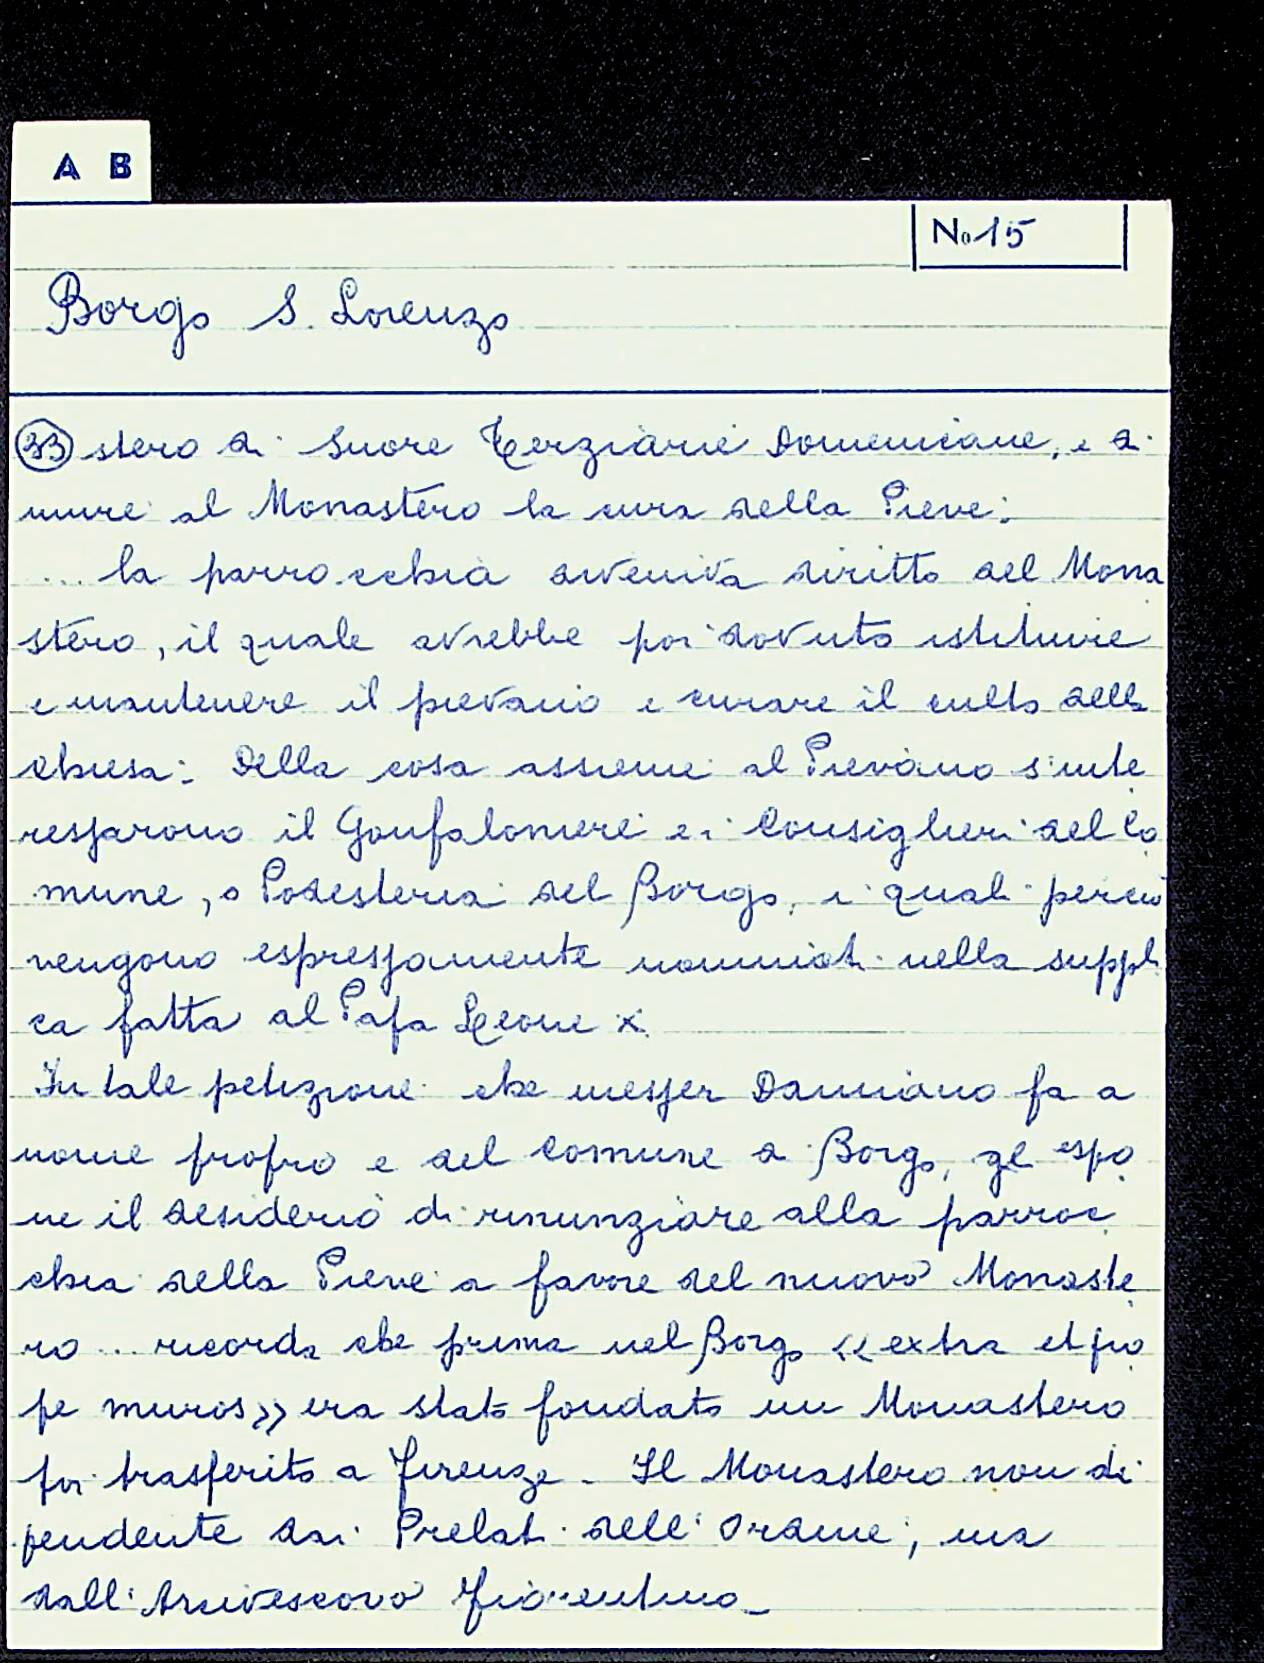 A B
No 15
Borgo S. Lorenzo
33 stero di Suore Terziarie Domenicane, e di
unire al Monastero la cura della Pieve:
... la parrocchia diveniva diritto del Mona
stero, il quale avrebbe poi dovuto istituire
e mantenere il pievano e curare il culto della
chiesa: Della cosa assieme al Pievano s'inte
ressarono il Gonfaloniere e i Consiglieri del Co
mune, o Podesteria del Borgo, i quali perciò
vengono espressamente nominati nella suppli
ca fatta al Papa Leone X.
In tale petizione che messer Damiano fa a
nome proprio e del comune di Borgo, gli espo
ne il desiderio di rinunziare alla parroc
chia della Pieve a favore del nuovo Monaste
ro ... ricorda che prima nel Borgo «extra et pro
pe muros» era stato fondato un Monastero
poi trasferito a Firenze. Il Monastero non di
pendente dai Prelati dell'Ordine, ma
dall'Arcivescovo Fiorentino_